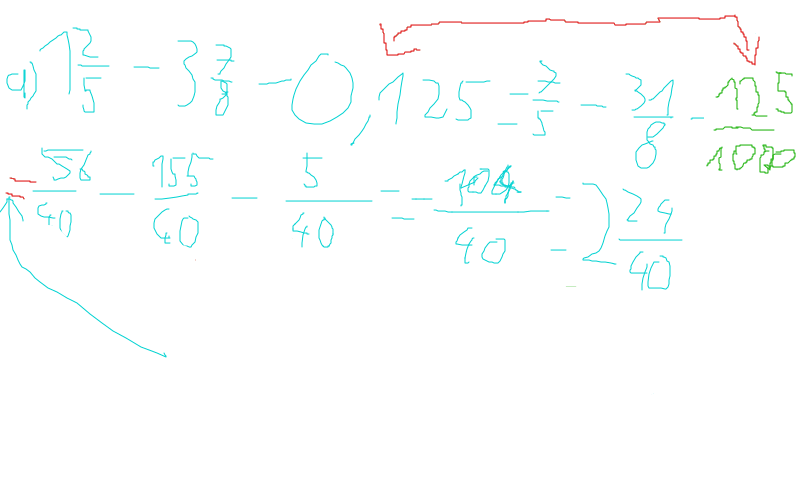 a) 1 2/5 - 3 7/8 - 0,125 = 7/5 - 31/8 - 125/1000
= 56/40 - 155/40 - 5/40 = - 104/40 = - 2 24/40